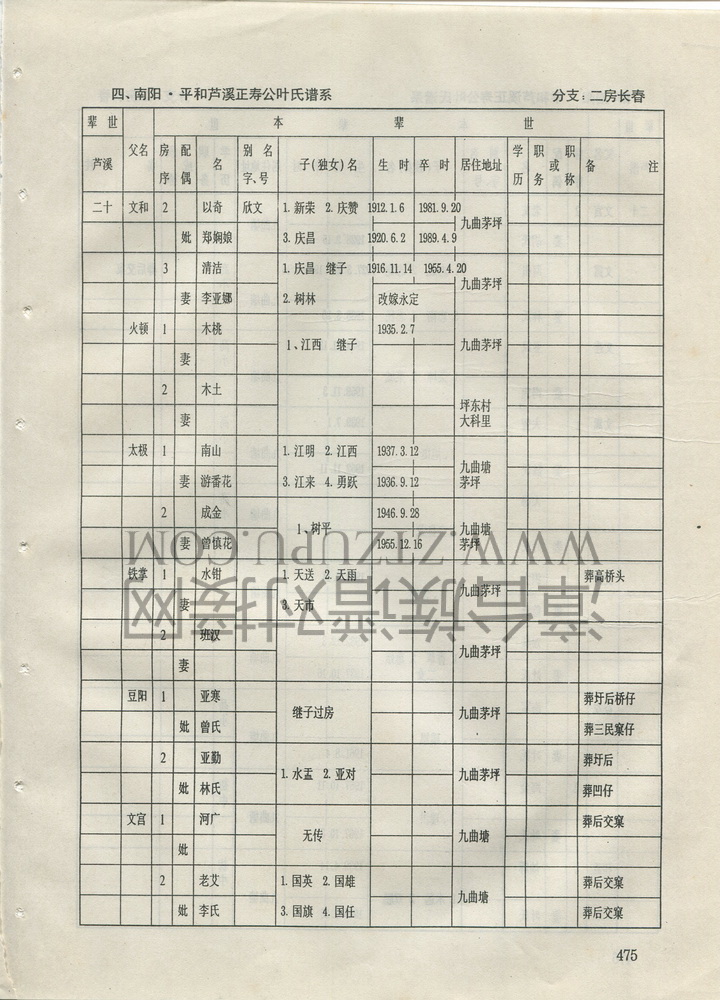 四、南阳·平和芦溪正寿公叶氏谱系 分支：二房长春
辈世 本 辈 世
芦溪 父名 房序 配偶 名 别名字、号 子(独女)名 生时 卒时 居住地址 学历 职务 或 职称 备注
二十 文和 2 以奇 欣文 1.新荣 2.庆赞 1912.1.6 1981.9.20 九曲茅坪
妣 郑娴娘 3.庆昌 1920.6.2 1989.4.9
3 清洁 1.庆昌 继子 1916.11.14 1955.4.20 九曲茅坪
妻 李亚娜 2.树林 改嫁永定
火顿 1 木桃 1、江西 继子 1935.2.7 九曲茅坪
妻
2 木土 坪东村大科里
妻
太极 1 南山 1.江明 2.江西 1937.3.12 九曲塘茅坪
妻 游番花 3.江来 4.勇跃 1936.9.12
2 成金 1、树平 1946.9.28 九曲塘茅坪
妻 曾慎花 1955.12.16
铁掌 1 水钳 1.天送 2.天雨 九曲茅坪 葬高桥头
妻 3.天市
2 班汉 九曲茅坪
妻
豆阳 1 亚寒 继子过房 九曲茅坪 葬圩后桥仔
妣 曾氏 葬三民窠仔
2 亚勤 1.水盂 2.亚对 九曲茅坪 葬圩后
妣 林氏 葬凹仔
文宫 1 河广 无传 九曲塘 葬后交窠
妣
2 老艾 1.国英 2.国雄 九曲塘 葬后交窠
妣 李氏 3.国旗 4.国任 葬后交窠
475
WWW.ZTZUPU.COM
漳台族谱对接网